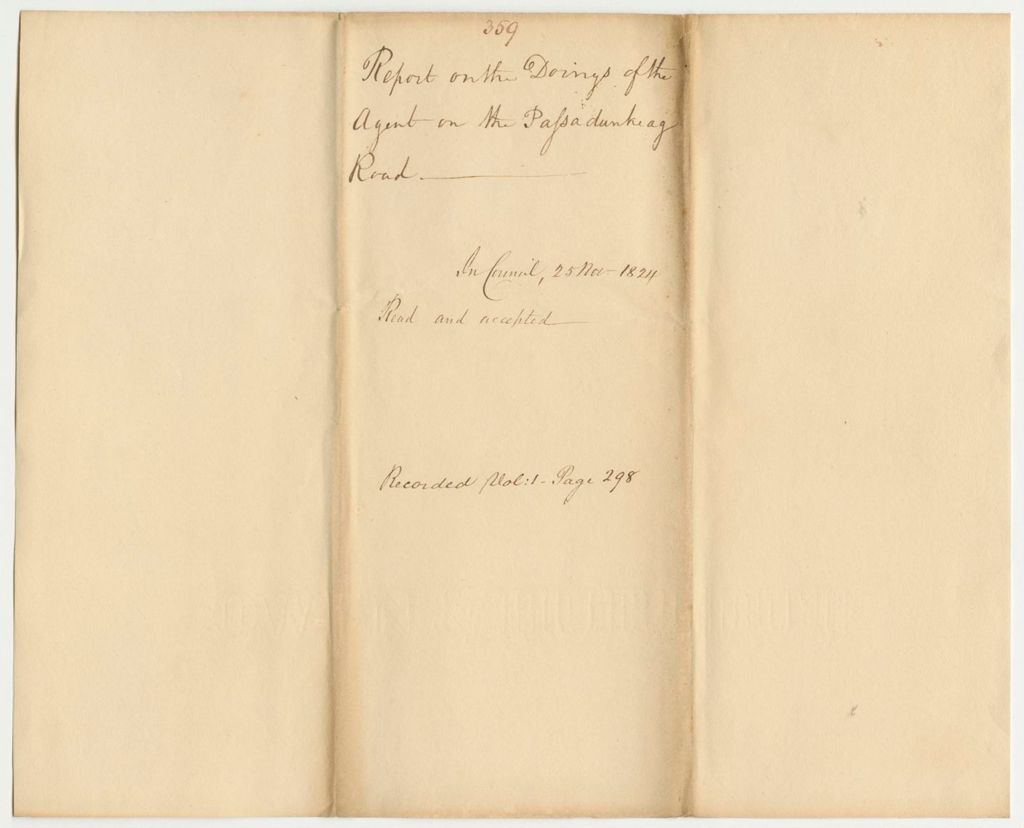 359
Report on the Doings of the
Agent on the Paſsadunkeag
Road.
In Council, 25 Nov- 1824
Read and accepted
Recorded Vol: 1 - Page 298